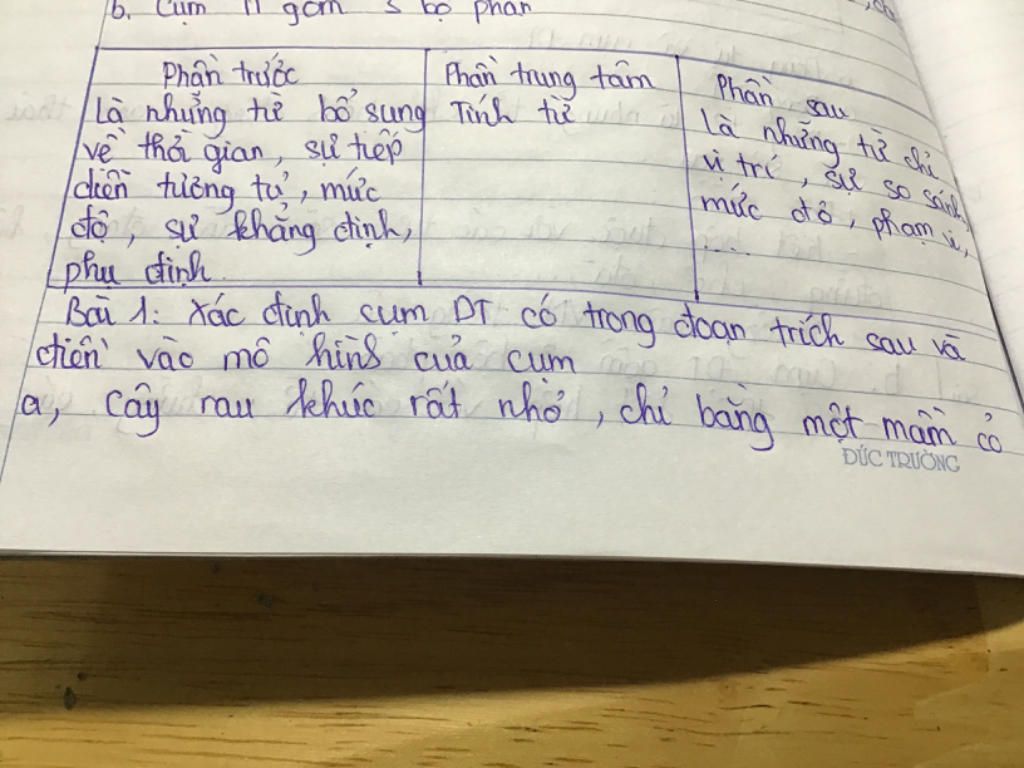 b. Cụm TT gồm 3 bộ phận
Phần trước
Là những từ bổ sung
về thời gian, sự tiếp
diễn tương tự, mức
độ, sự khẳng định,
phụ định
Phần trung tâm
Tính từ
Phần sau
Là những từ chỉ
vị trí, sự so sánh,
mức độ, phạm vi,
....
Bài 1: Xác định cụm DT có trong đoạn trích sau và
điền vào mô hình của cụm
a, Cây rau khúc rất nhỏ, chỉ bằng một mầm cỏ
ĐỨC TRƯỜNG